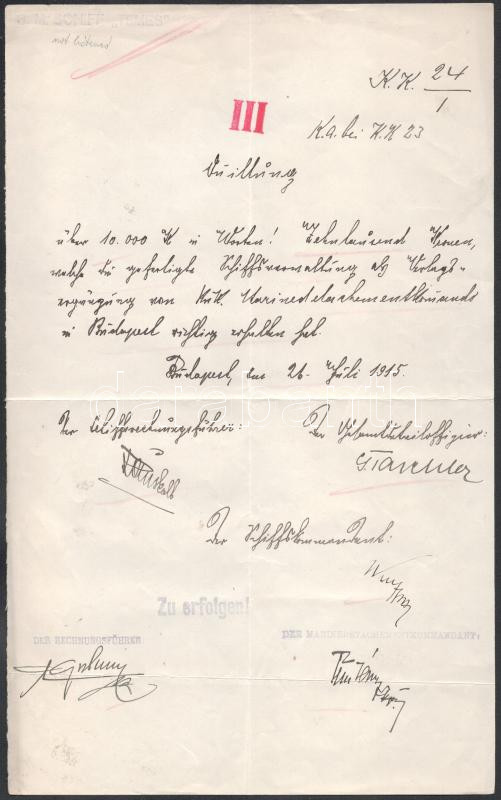 S. M. SCHIFF „TEMES"
K. K. 24/1
III
K.a. bei K.K 23
Quittung
über 10.000 K in Worten! Zehntausend Kronen,
welche die gefertigte Schiffsverwaltung als Verlags-
ergänzung von k.u.k. Marinedetachementkmando
in Budapest richtig erhalten hat.
Budapest, am 26. Juli 1915.
Der Schiffsrechnungsführer:
Der Gesamtdetailoffizier:
Der Schiffskommandant:
Zu erfolgen!
DER RECHNUNGSFÜHRER:
DER MARINEDETACHEMENTKOMMANDANT:
databank